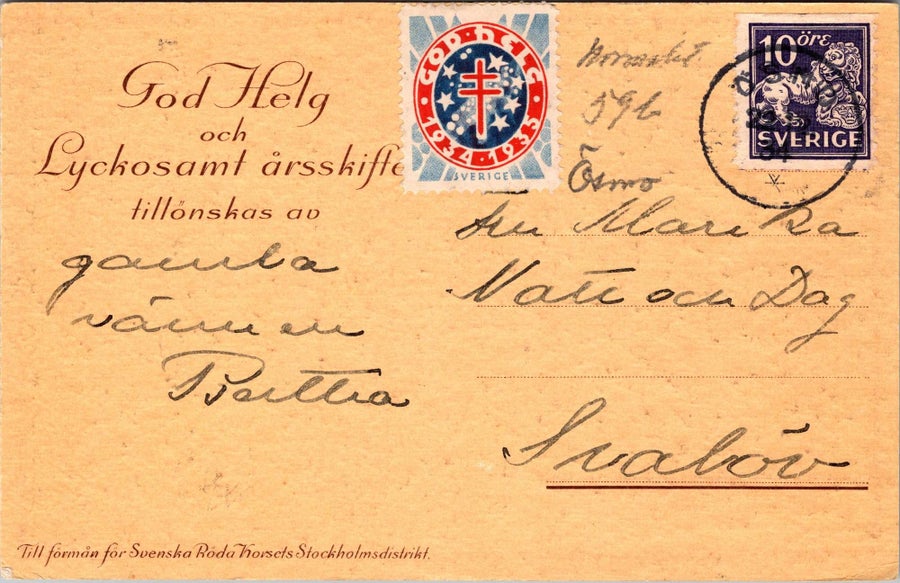 God Helg
och
Lyckosamt årsskifte
tillönskas av
gamla
vännen
Bertha
GOD HELG
1934 1935
SVERIGE
596
Ösmo
10 öre
SVERIGE
Fru Marika
Natt och Dag
Svalöv
Till förmån för Svenska Röda Korsets Stockholmsdistrikt.